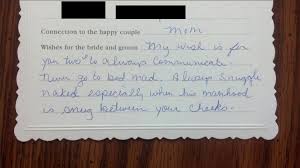 Connection to the happy couple Mom
Wishes for the bride and groom My wish is for
you two to always communicate.
Never go to bed mad. Always snuggle
naked especially when his manhood
is snug between your cheeks.